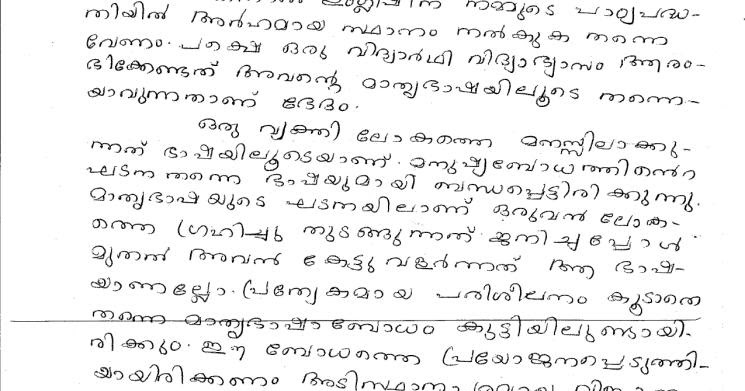 ഇംഗ്ലീഷിന് നമ്മുടെ പാഠ്യപദ്ധ-
തിയിൽ അർഹമായ സ്ഥാനം നൽകുക തന്നെ
വേണം. പക്ഷെ ഒരു വിദ്യാർഥി വിദ്യാഭ്യാസം ആരം-
ഭിക്കേണ്ടത് അവന്റെ മാതൃഭാഷയിലൂടെ തന്നെ-
യാവുന്നതാണ് ഭേദം.
ഒരു വ്യക്തി ലോകത്തെ മനസ്സിലാക്കു-
ന്നത് ഭാഷയിലൂടെയാണ്. മനുഷ്യബോധത്തിൻെറ
ഘടന തന്നെ ഭാഷയുമായി ബന്ധപ്പെട്ടിരിക്കുന്നു.
മാതൃഭാഷയുടെ ഘടനയിലാണ് ഒരുവൻ ലോക-
ത്തെ ഗ്രഹിച്ചു തുടങ്ങുന്നത്. ജനിച്ചപ്പോൾ
മുതൽ അവൻ കേട്ടു വളർന്നത് ആ ഭാഷ-
യാണല്ലോ. പ്രത്യേകമായ പരിശീലനം കൂടാതെ
തന്നെ മാതൃഭാഷാബോധം കുട്ടിയിലുണ്ടായി-
രിക്കും. ഈ ബോധത്തെ പ്രയോജനപ്പെടുത്തി-
യായിരിക്കണം